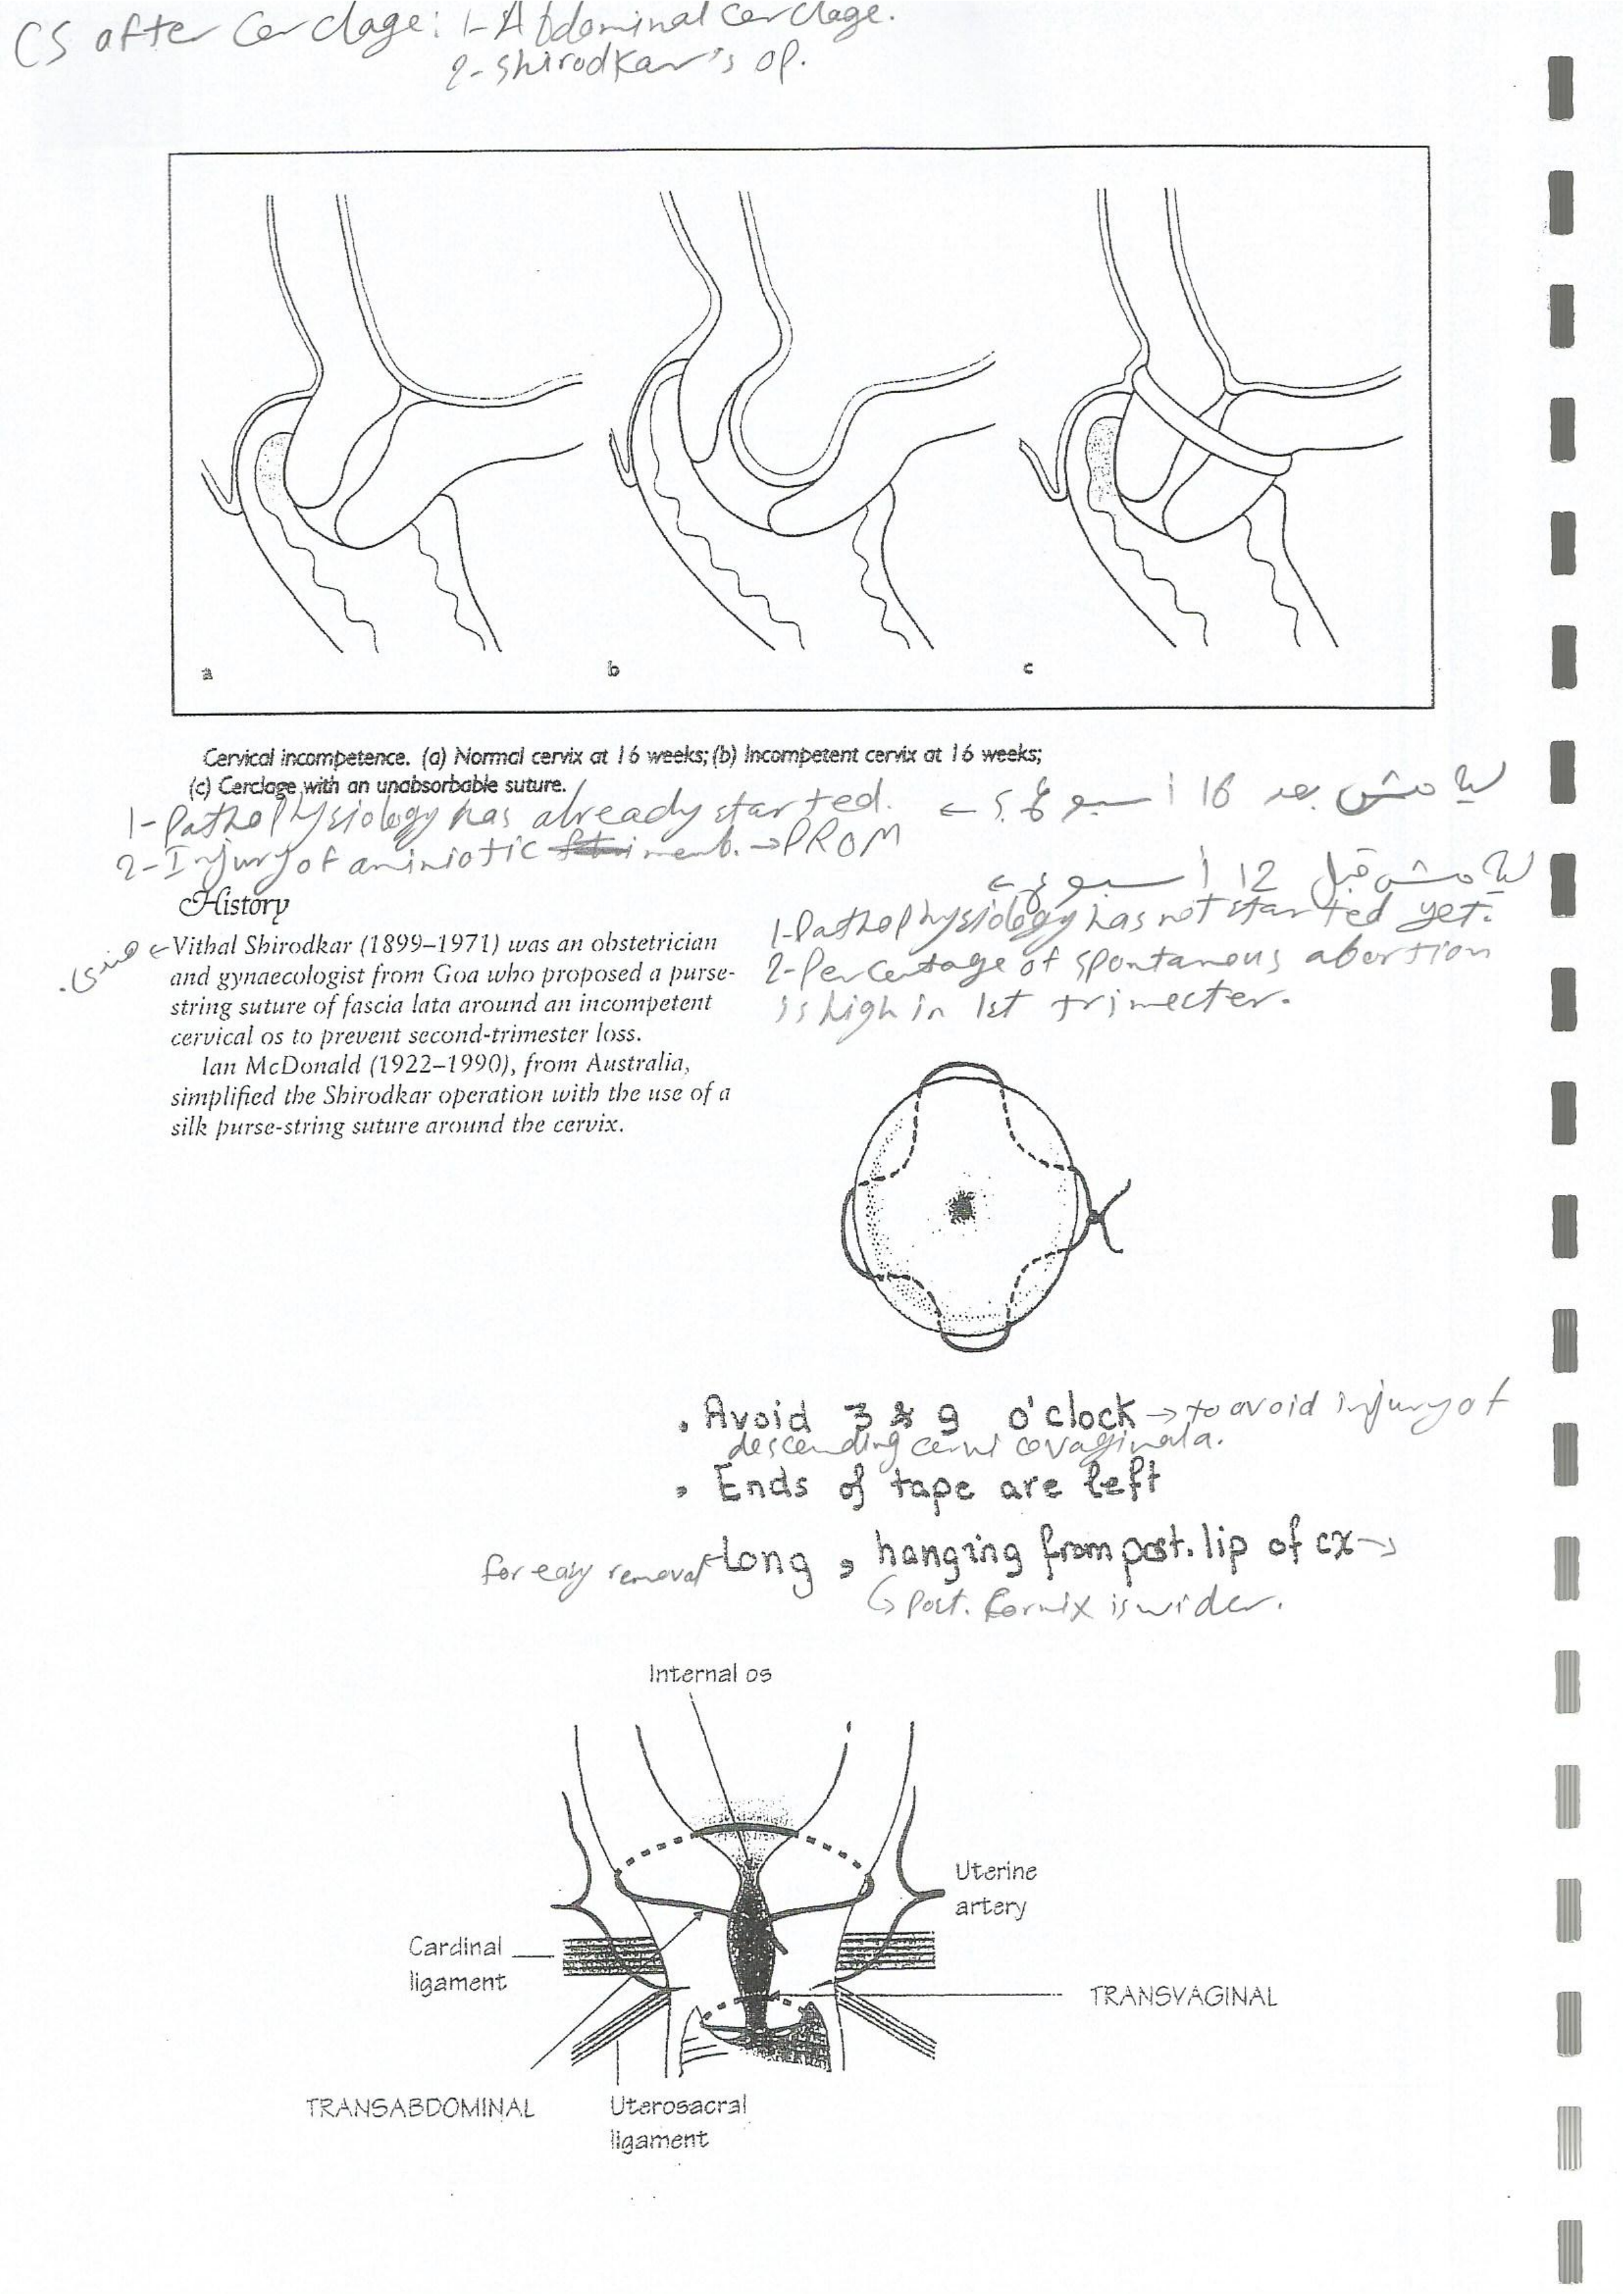 CS after Cerclage: 1- Abdominal cerclage.
2- Shirodkar's op.
a
b
c
Cervical incompetence. (a) Normal cervix at 16 weeks; (b) Incompetent cervix at 16 weeks;
(c) Cerclage with an unabsorbable suture.
ليه مش بعد 16 أسبوع ؟ ←
1- Pathophysiology has already started.
2- Injury of aminiotic memb. → PROM
ليه مش قبل 12 أسبوع ←
1- Pathophysiology has not started yet.
2- Percentage of spontanous abortion
is high in 1st trimecter.
History
هندي ← Vithal Shirodkar (1899–1971) was an obstetrician
and gynaecologist from Goa who proposed a purse-
string suture of fascia lata around an incompetent
cervical os to prevent second-trimester loss.
Ian McDonald (1922–1990), from Australia,
simplified the Shirodkar operation with the use of a
silk purse-string suture around the cervix.
. Avoid 3 & 9 o'clock → to avoid injury of
descending cervicovaginala.
. Ends of tape are left
for easy removal ← Long , hanging from post. lip of cx →
↳ Post. fornix is wider.
Internal os
Uterine
artery
Cardinal
ligament
TRANSVAGINAL
TRANSABDOMINAL
Uterosacral
ligament